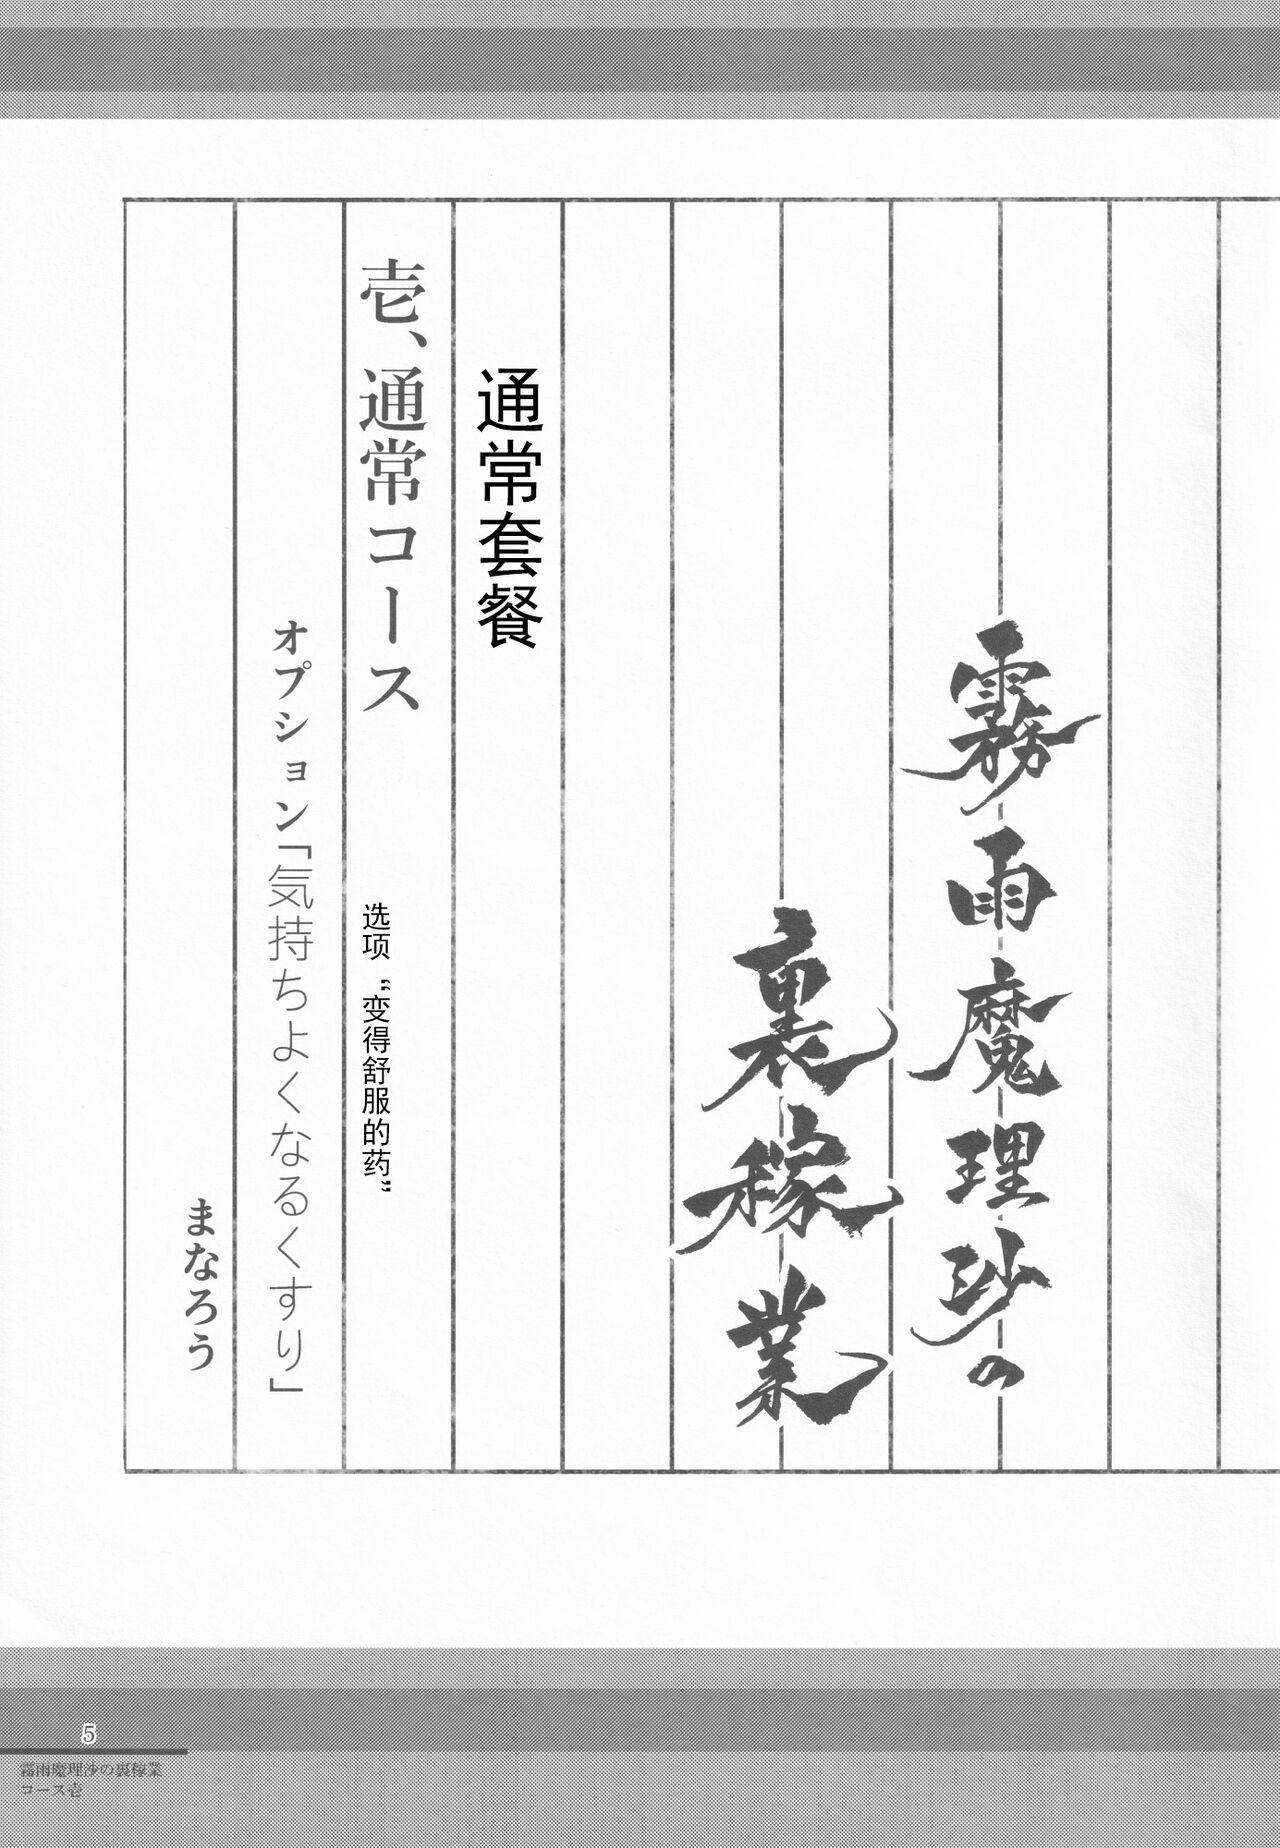 霧雨魔理沙の
裏稼業
通常套餐
壱、通常コース
选项“变得舒服的药”
オプション「気持ちよくなるくすり」
まなろう
5
霧雨魔理沙の裏稼業
コース壱